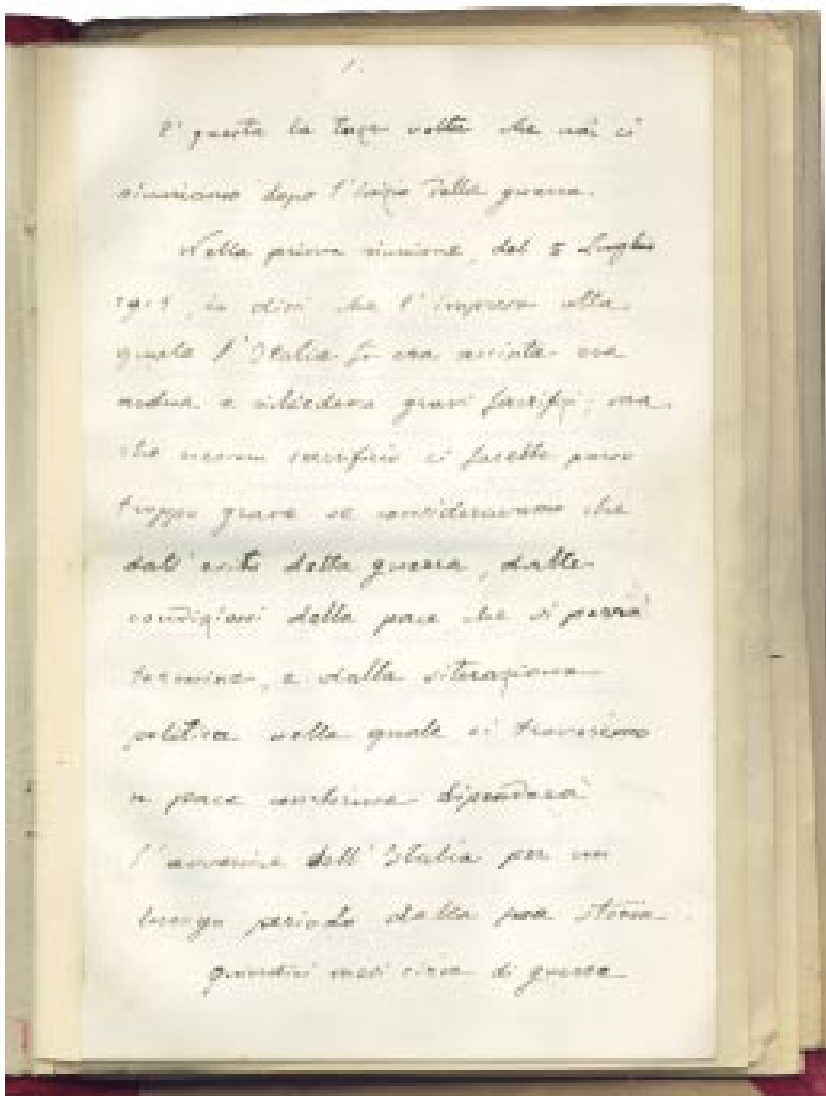 1.
E' questa la terza volta che noi ci
riuniamo dopo l'inizio della guerra.
Nella prima riunione, del 5 Luglio
1915, io dissi che l'impresa alla
quale l'Italia si era accinta era
ardua e richiedeva gravi sacrifizi; ma
che nessun sacrificio ci
troppo grave se consideravamo che
dall'esito della guerra, dalle
condizioni della pace che vi porrà
termine, e dalla situazione
politica nella quale ci troveremo
a pace conchiusa dipenderà
l'avvenire dell'Italia per un
lungo periodo della sua storia.
quindici mesi circa di guerra